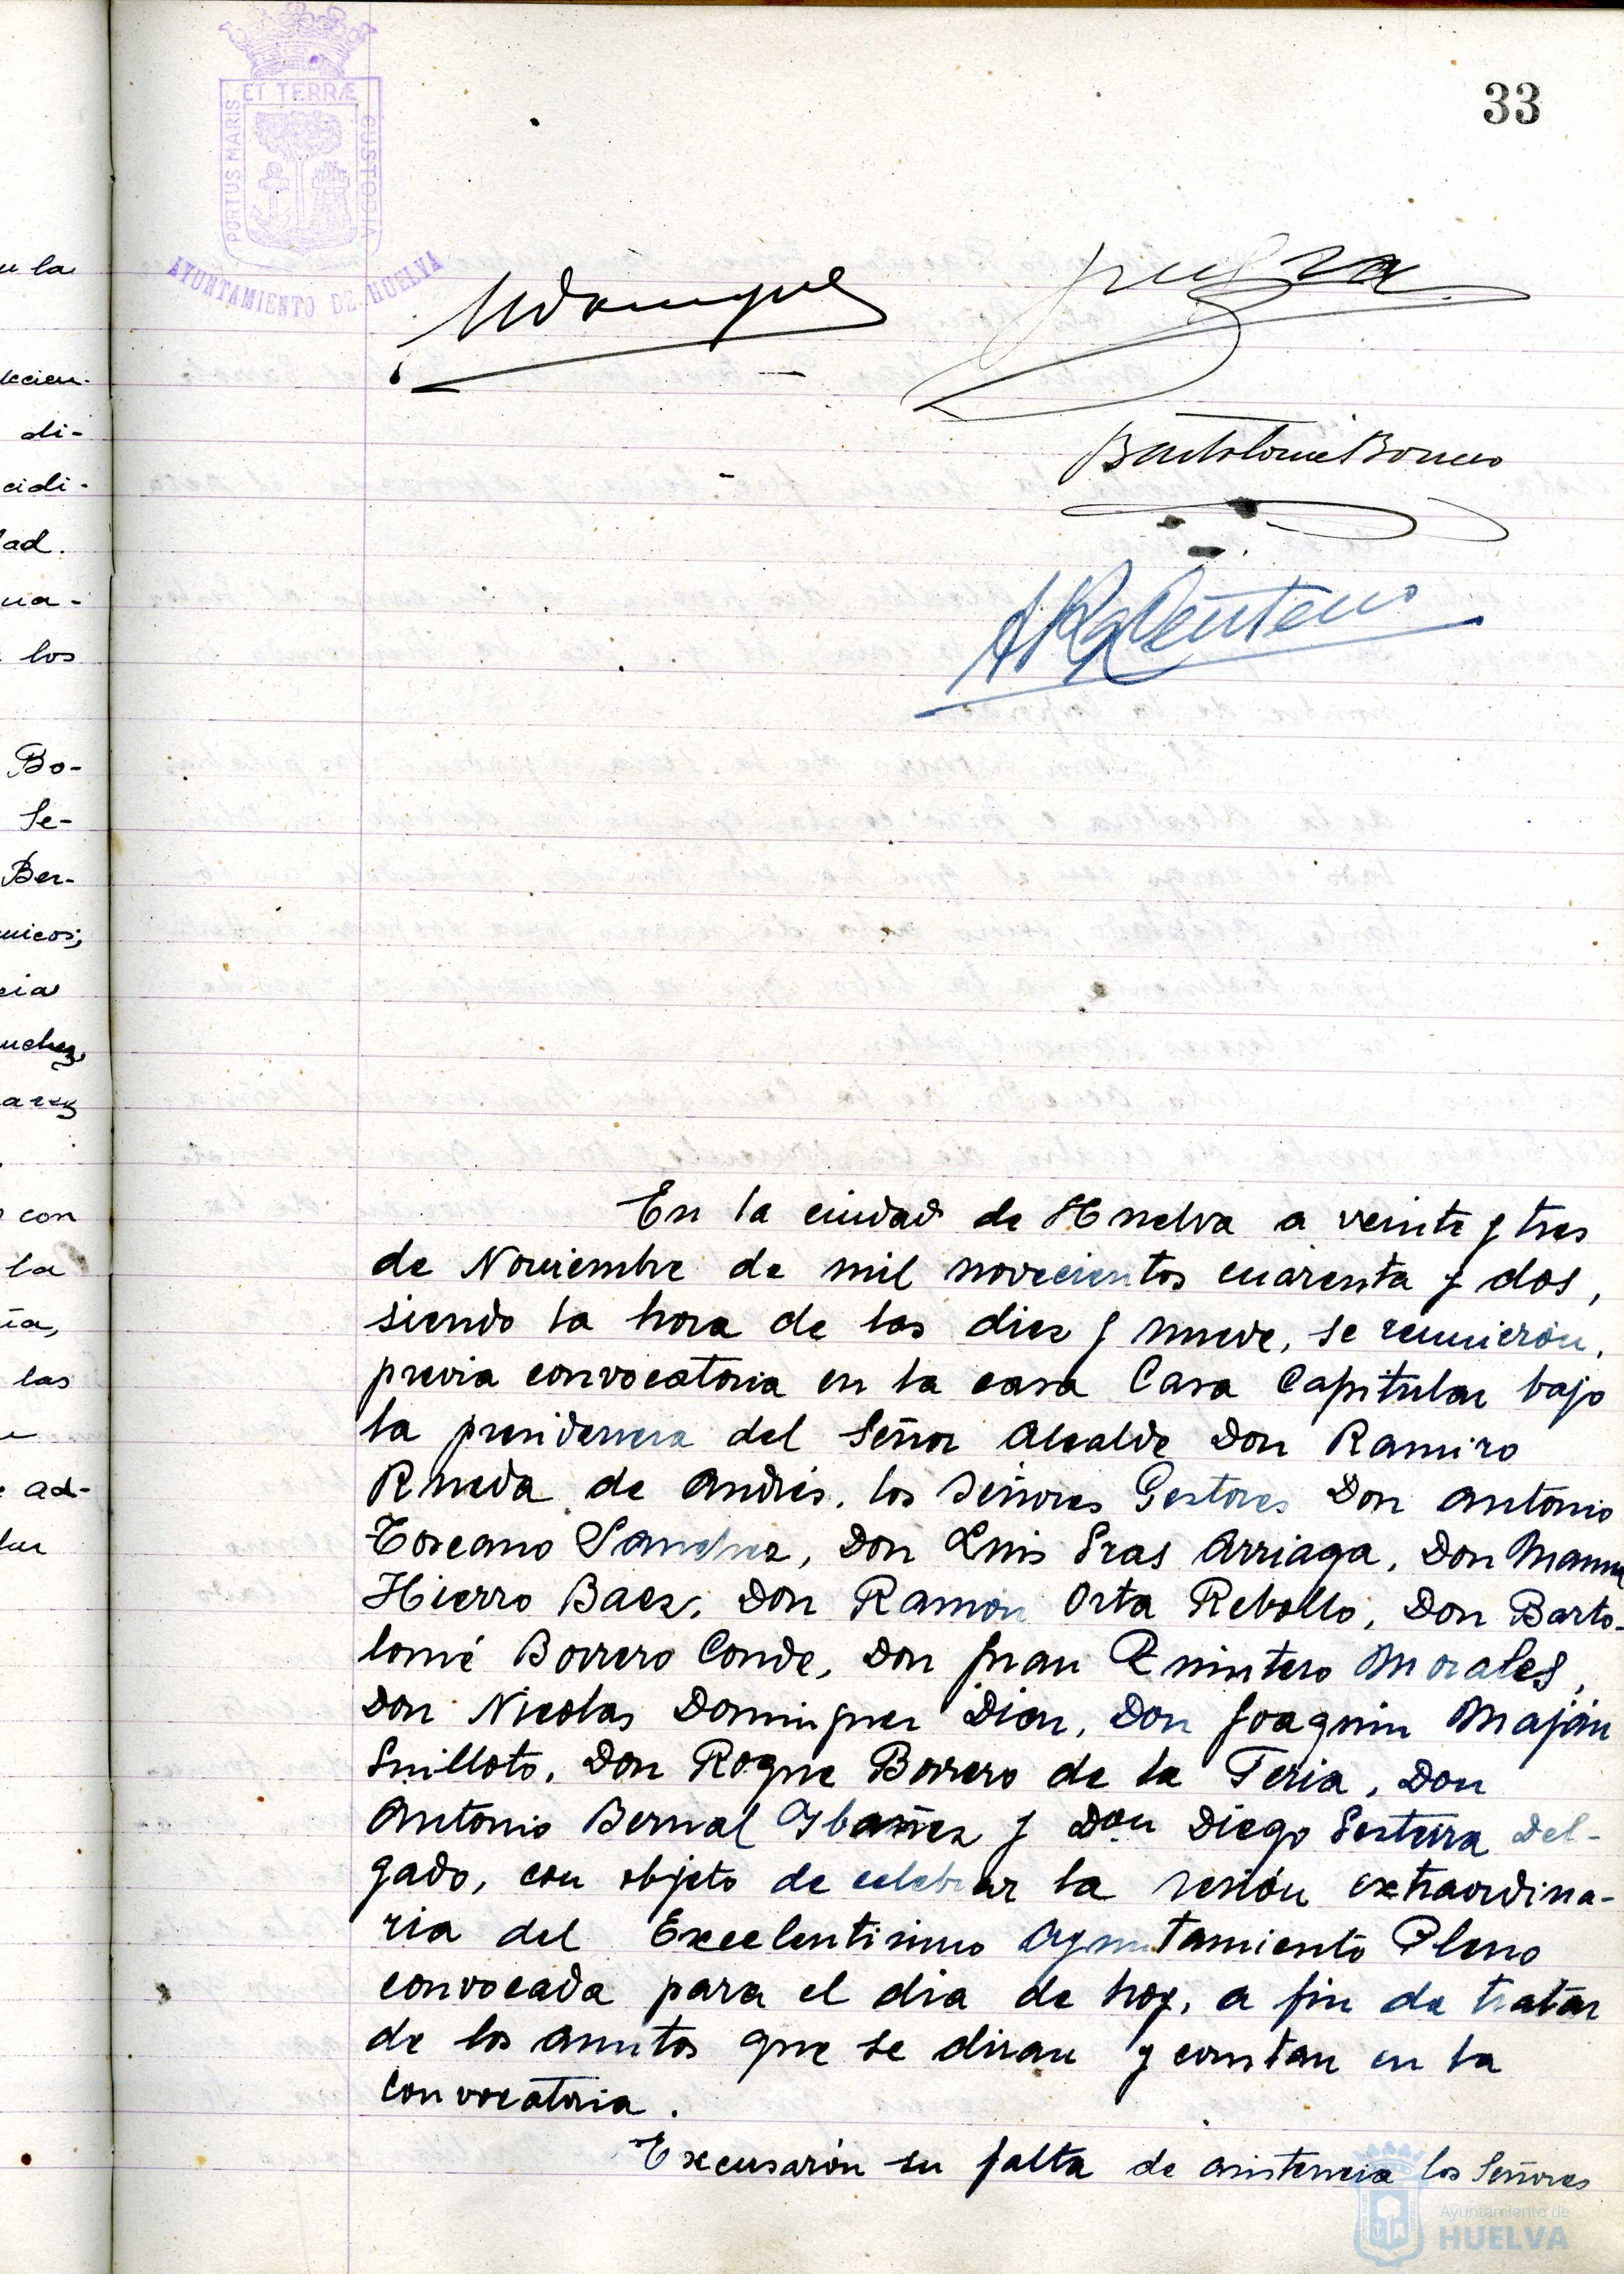 33
ET TERRÆ
PORTUS MARIS
CUSTODIA
AYUNTAMIENTO DE HUELVA
u la
di-
cidi-
los
Bo-
Se-
Ber-
con
la
las
ad-
Bartolomé Borrero
En la ciudad de Huelva a veinte y tres
de Noviembre de mil novecientos cuarenta y dos,
siendo la hora de las diez y nueve, se reunierón,
previa convocatoria en la casa Casa Capitular bajo
la presidencia del Señor Alcalde Don Ramiro
Rueda de Andrés, los Señores Gestores Don Antonio
Toscano Sanchez, Don Luis Sras Arriaga, Don Manuel
Hierro Baez, Don Ramón Orta Rebollo, Don Barto-
lomé Borrero Conde, Don Juan Quintero Morales,
Don Nicolas Dominguez Diaz, Don Joaquin Maján
Guilloto, Don Roque Borrero de la Feria, Don
Antonio Bernal Ybañez y Don Diego Del-
gado, con objeto de celebrar la sesión extraordina-
ria del Excelentisimo Ayuntamiento Pleno
convocada para el dia de hoy, a fin de tratar
de los asuntos que se diran y constan en la
convocatoria.
Excusarón su falta de asistencia los Señores
Ayuntamiento de
HUELVA